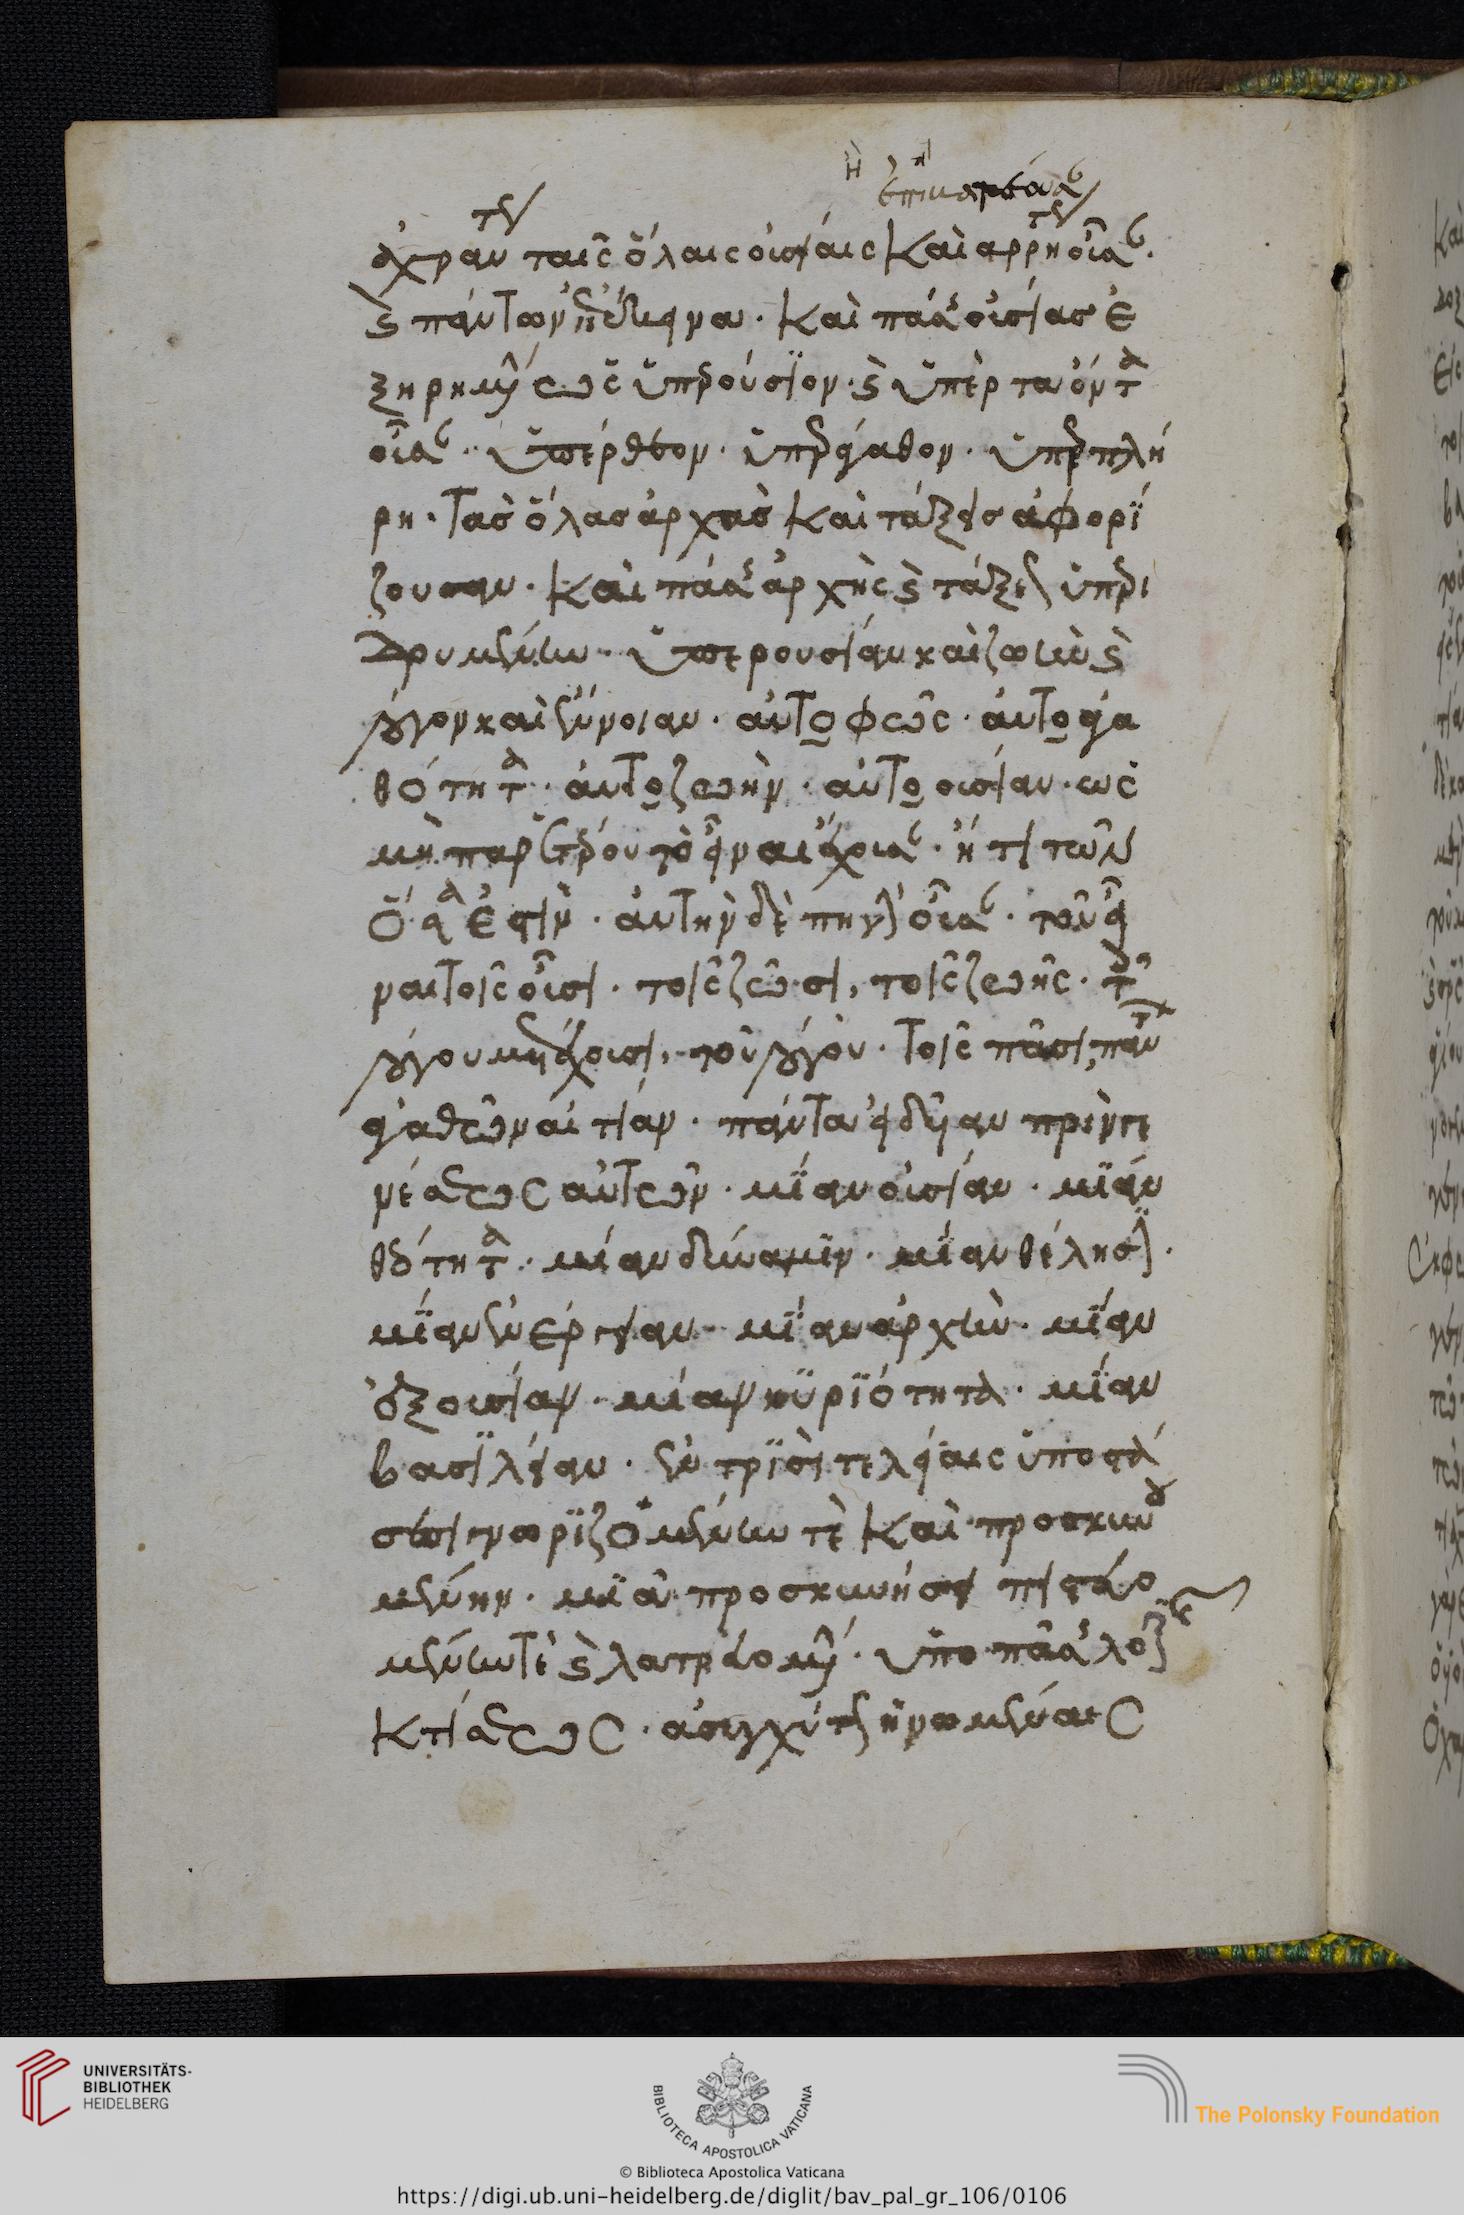 ἢ
ἄχραντον ταῖς ὅλαις οὐσίαις καὶ αρρη οὖσαν.
καὶ πάντων ἐπέκεινα. καὶ πάσης οὐσίας ἐ
ξηρημένην ὡς ὑπερούσϊον. καὶ ὑπὲρ τα ὄντα
οὖσαν. ὑπέρθεον. ὑπεράγαθον. ὑπερπλή
ρη. τὰς ὅλας ἀρχὰς καὶ τάξεις ἀφορΐ
ζουσαν. καὶ πάσης ἀρχῆς καὶ τάξεως ὑπερι
δρυμένην. ὑπερουσίαν καὶ ζωὴν καὶ
λόγον καὶ ἔννοιαν. αὐτοφῶς. αὐτοαγα
θότητα. αὐτοζωὴν. αὐτοουσίαν. ὡς
μὴ παρ' ἑτέρου τὸ εἶναι ἔχουσαν. ἤ τι τῶν
ὅσα ἐστὶν. αὐτὴν δὲ πηγὴν οὖσαν. τοῦ εἶ
ναι τοῖς οὖσι. τοῖς ζῶσι, τῆς ζωῆς. τοῖς
λόγου μετέχουσι, τοῦ λόγου. τοῖς πᾶσι, πάντων
ἀγαθῶν αἰτίαν. πάντα εἰδυῖαν πρὶν γε
νέσεως αὐτῶν. μΐαν οὐσίαν. μΐαν
θεότητα. μίαν δύναμϊν. μΐαν θέλησιν.
μΐαν ἐνέργειαν. μΐαν ἀρχὴν. μΐαν
ἐξουσίαν. μίαν κϋρϊότητα. μΐαν
βασϊλείαν. ἐν τρϊσὶ τελείαις ὑποστά
σεσι γνωρϊζομένην τὲ καὶ προσκυνου
μένην. μϊᾶ προσκυνήσει πιστευο
μένην τὲ καὶ λατρευομένην. ὑπο πάσης λογικῆς
κτίσεως. ἀσυγχύτως ἡνωμέναις
UNIVERSITÄTS-
BIBLIOTHEK
HEIDELBERG
BIBLIOTECA APOSTOLICA VATICANA
© Biblioteca Apostolica Vaticana
The Polonsky Foundation
https://digi.ub.uni-heidelberg.de/diglit/bav_pal_gr_106/0106